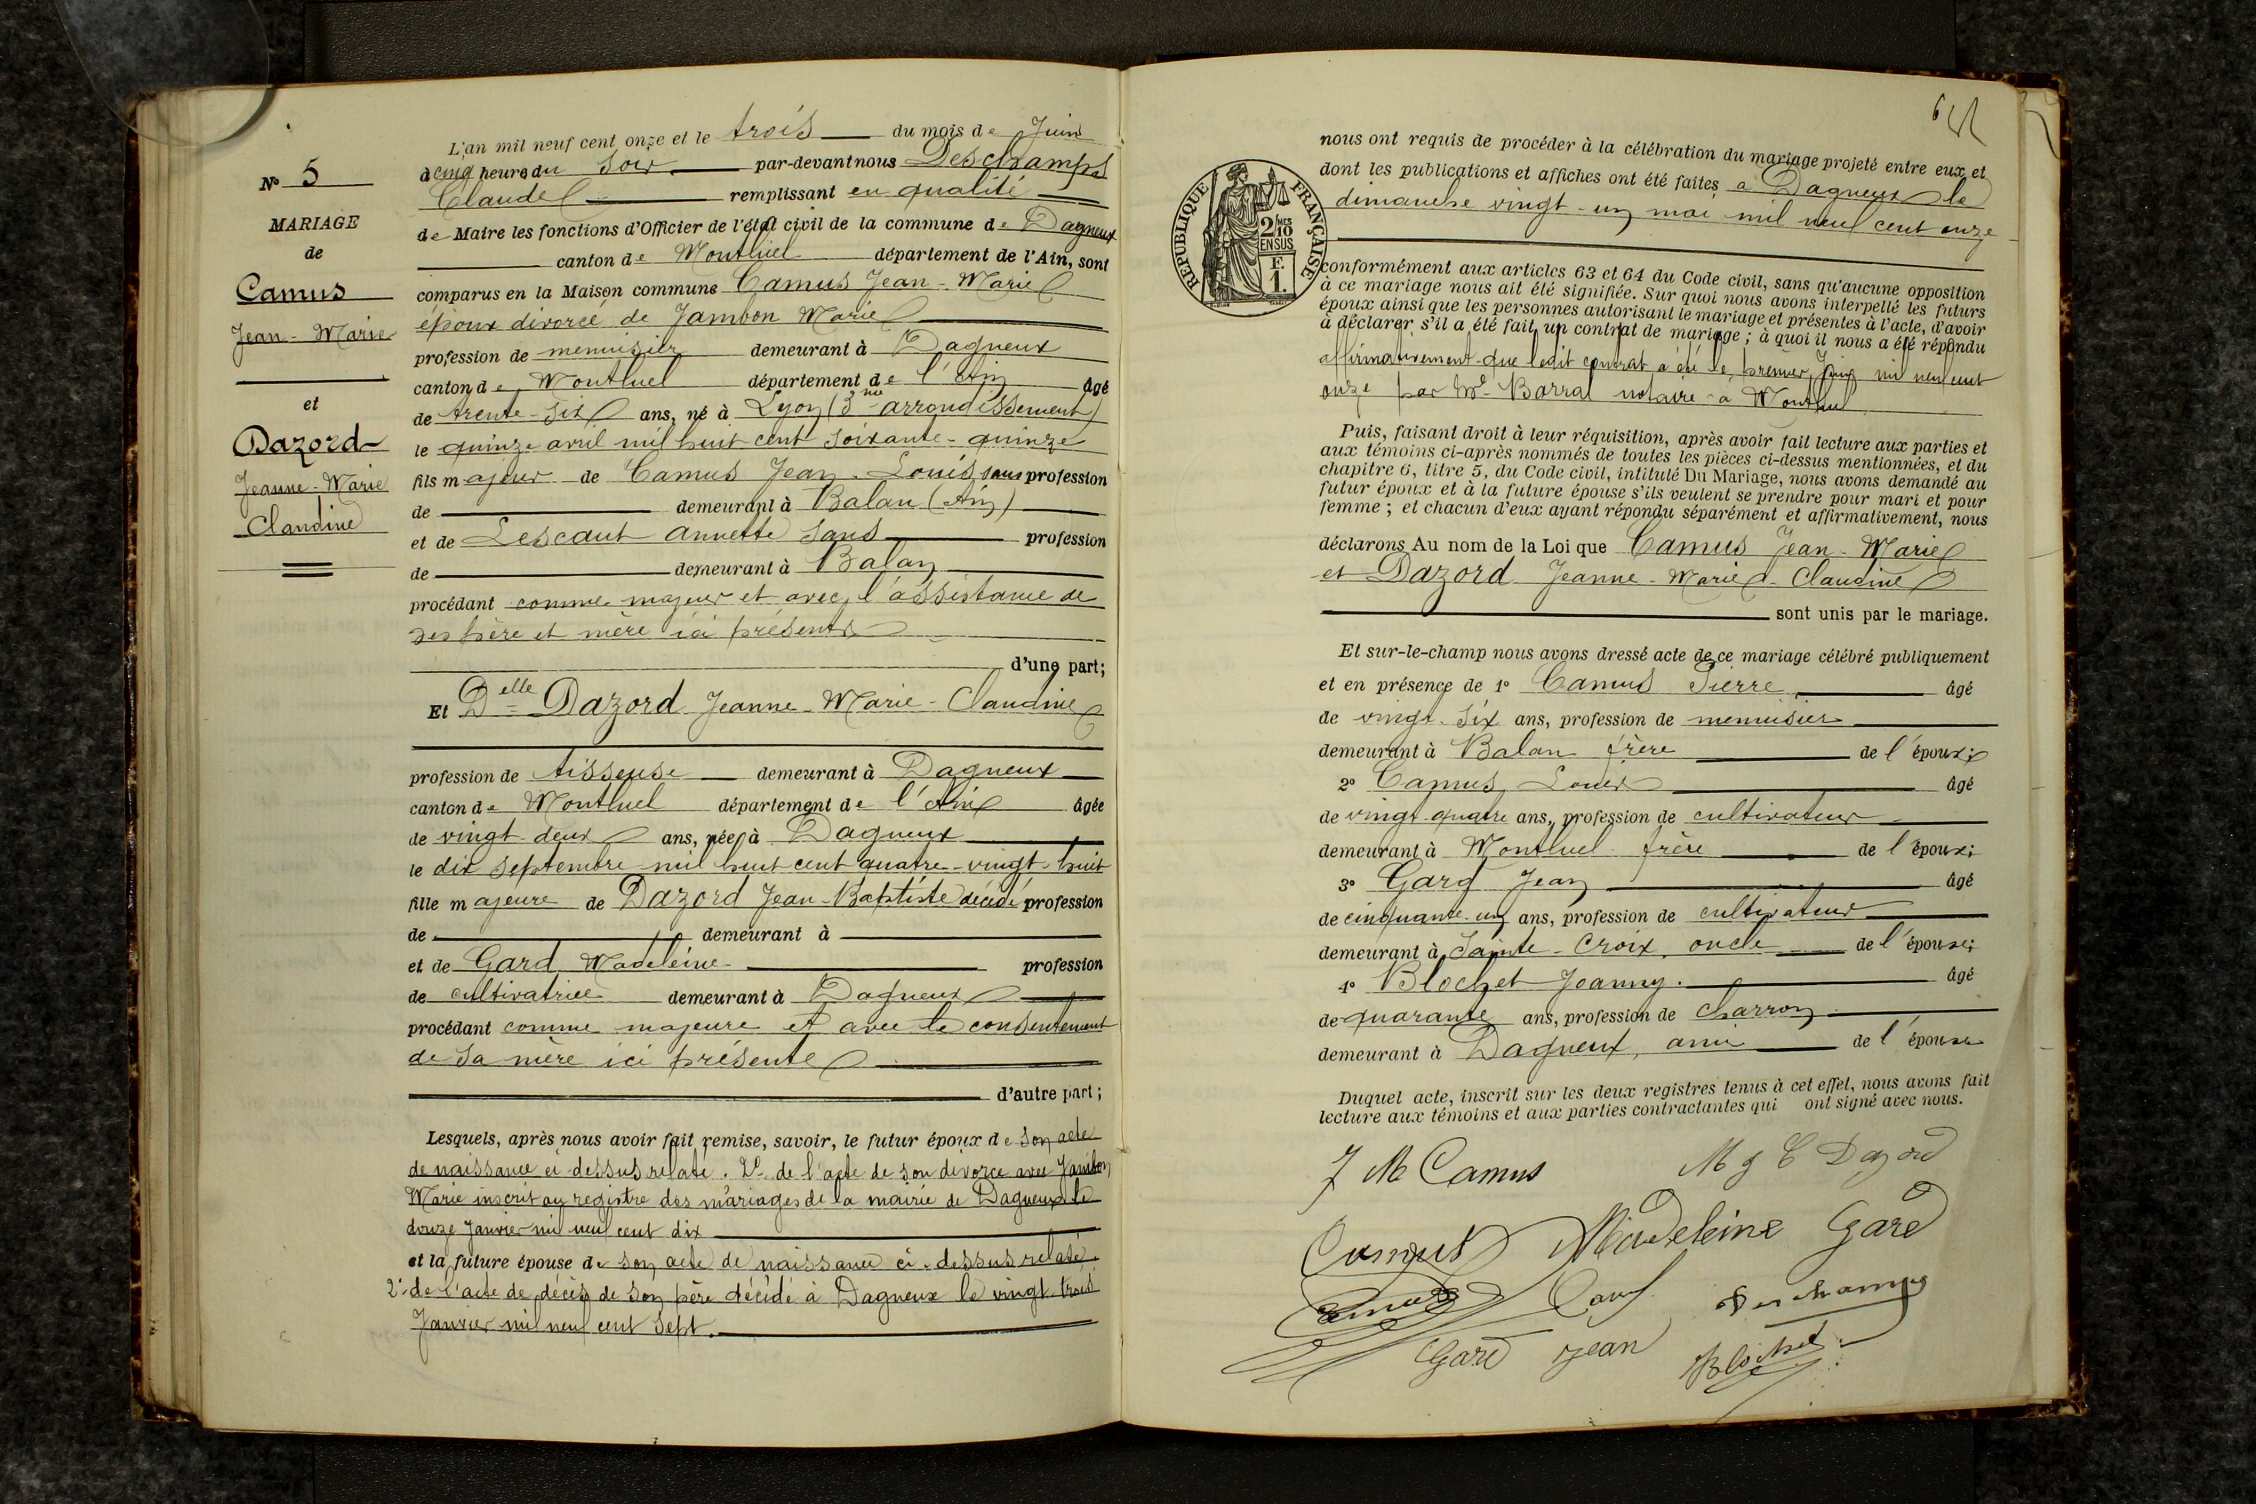 N° 5
MARIAGE
de
Camus
Jean-Marie
et
Dazord
Jeanne-Marie
Claudine
L'an mil neuf cent onze et le trois du mois de Juin
à cinq heures du soir par-devant nous Deschamps
Claude remplissant en qualité
de Maire les fonctions d'Officier de l'état civil de la commune de Dagneux
canton de Montluel département de l'Ain, sont
comparus en la Maison commune Camus Jean-Marie
époux divorcé de Jambon Marie
profession de menuisier demeurant à Dagneux
canton de Montluel département de l'Ain âgé
de trente-six ans, né à Lyon (3me arrondissement)
le quinze avril mil huit cent soixante-quinze
fils majeur de Camus Jean-Louis, sans profession
de demeurant à Balan (Ain)
et de Lescaut Annette sans profession
de demeurant à Balan
procédant comme majeur et avec l'assistance de
ses père et mère ici présents
d'une part;
Et Delle Dazord Jeanne-Marie-Claudine
profession de tisseuse demeurant à Dagneux
canton de Montluel département de l'Ain âgée
de vingt-deux ans, née à Dagneux
le dix septembre mil huit cent quatre-vingt-huit
fille majeure de Dazord Jean-Baptiste décédé profession
de demeurant à
et de Gard Madeleine profession
de cultivatrice demeurant à Dagneux
procédant comme majeure et avec le consentement
de sa mère ici présente
d'autre part;
Lesquels, après nous avoir fait remise, savoir, le futur époux de son acte
de naissance ci-dessus relaté. 2° de l'acte de son divorce avec Jambon
Marie inscrit au registre des mariages de la mairie de Dagneux le
douze Janvier mil neuf cent dix
et la future épouse de son acte de naissance ci-dessus relaté.
2° de l'acte de décès de son père décédé à Dagneux le vingt-trois
Janvier mil neuf cent sept.
RÉPUBLIQUE FRANÇAISE
2/10
EN SUS
F.
1.
nous ont requis de procéder à la célébration du mariage projeté entre eux et
dont les publications et affiches ont été faites à Dagneux le
dimanche vingt-un mai mil neuf cent onze
conformément aux articles 63 et 64 du Code civil, sans qu'aucune opposition
à ce mariage nous ait été signifiée. Sur quoi nous avons interpellé les futurs
époux ainsi que les personnes autorisant le mariage et présentes à l'acte, d'avoir
à déclarer s'il a été fait un contrat de mariage; à quoi il nous a été répondu
affirmativement que ledit contrat a été le premier Juin mil neuf cent
onze par Me Barral notaire à Montluel
Puis, faisant droit à leur réquisition, après avoir fait lecture aux parties et
aux témoins ci-après nommés de toutes les pièces ci-dessus mentionnées, et du
chapitre 6, titre 5, du Code civil, intitulé Du Mariage, nous avons demandé au
futur époux et à la future épouse s'ils veulent se prendre pour mari et pour
femme; et chacun d'eux ayant répondu séparément et affirmativement, nous
déclarons Au nom de la Loi que Camus Jean-Marie
et Dazord Jeanne-Marie-Claudine
sont unis par le mariage.
Et sur-le-champ nous avons dressé acte de ce mariage célébré publiquement
et en présence de 1° Camus Pierre âgé
de vingt-six ans, profession de menuisier
demeurant à Balan frère de l'époux;
2° Camus Louis âgé
de vingt-quatre ans, profession de cultivateur
demeurant à Montluel frère de l'époux;
3° Gard Jean âgé
de cinquante-un ans, profession de cultivateur
demeurant à Sainte-Croix, oncle de l'épouse;
4° Blochet Joanny. âgé
de quarante ans, profession de charron
demeurant à Dagneux, ami de l'épouse
Duquel acte, inscrit sur les deux registres tenus à cet effet, nous avons fait
lecture aux témoins et aux parties contractantes qui ont signé avec nous.
J M Camus M J C Dazord
Camus Madeleine Gard
Camus Deschamps
Gard Jean Blochet